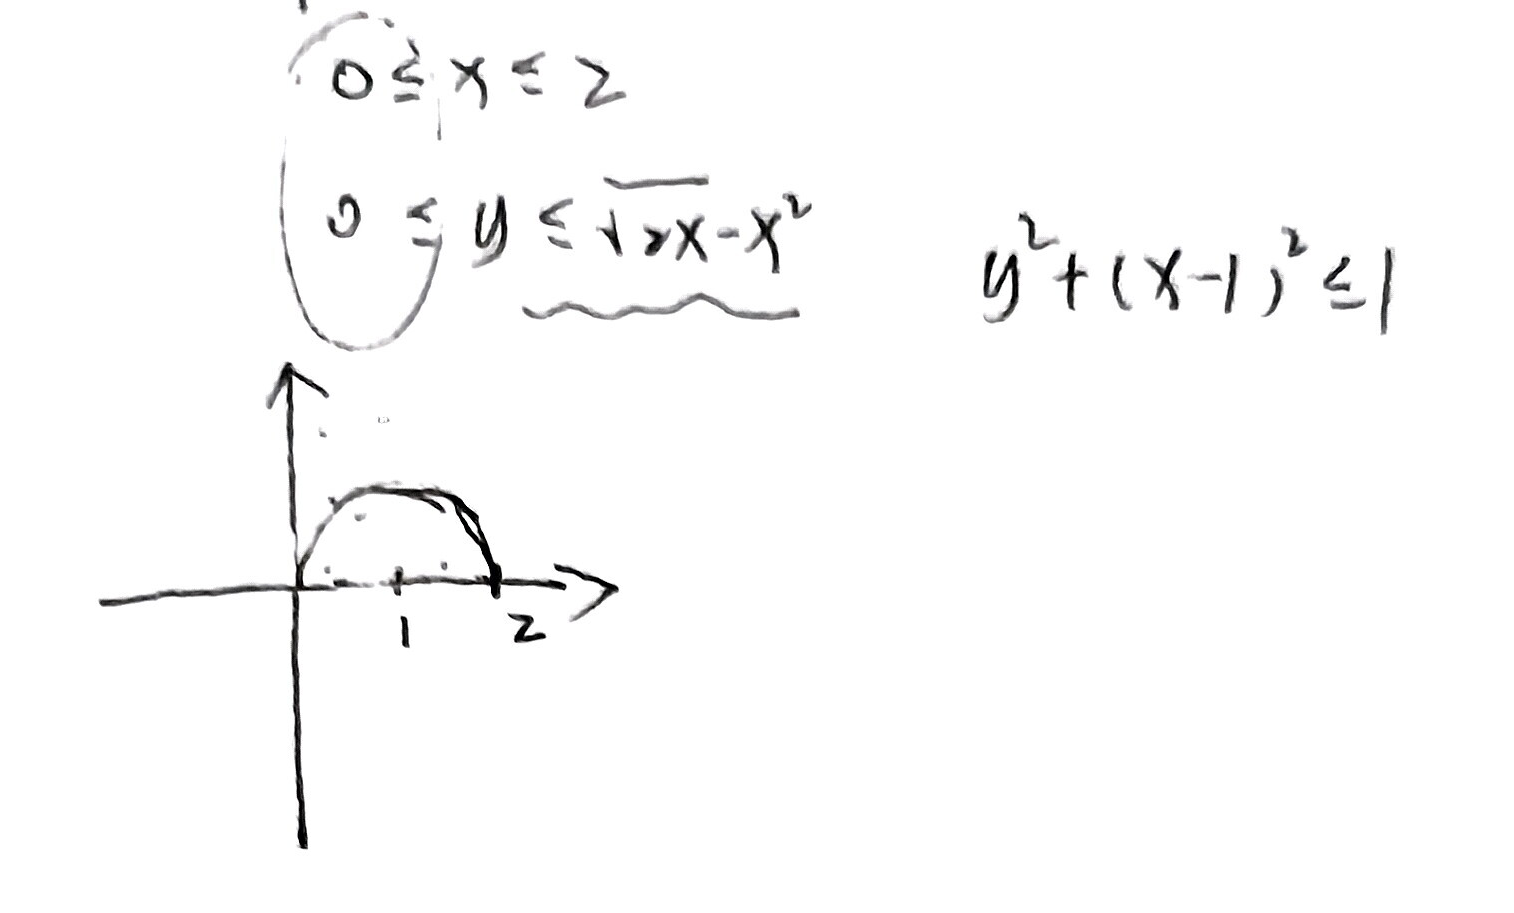 0 ≤ x ≤ 2
0 ≤ y ≤ √2x-x²
y²+(x-1)²≤1
1 2